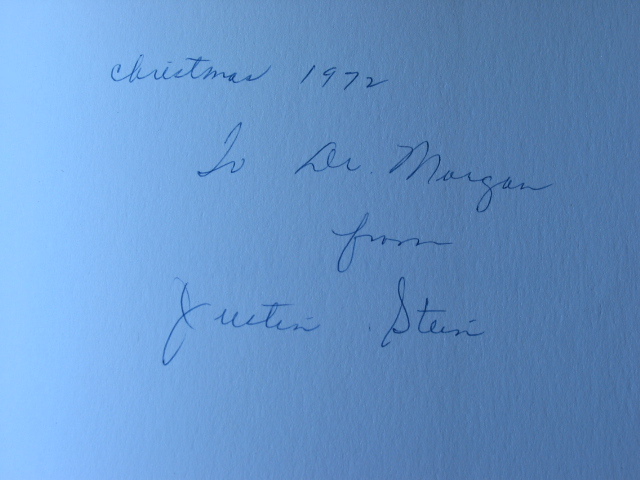 Christmas 1972
To Dr. Morgan
from
Justin Stein